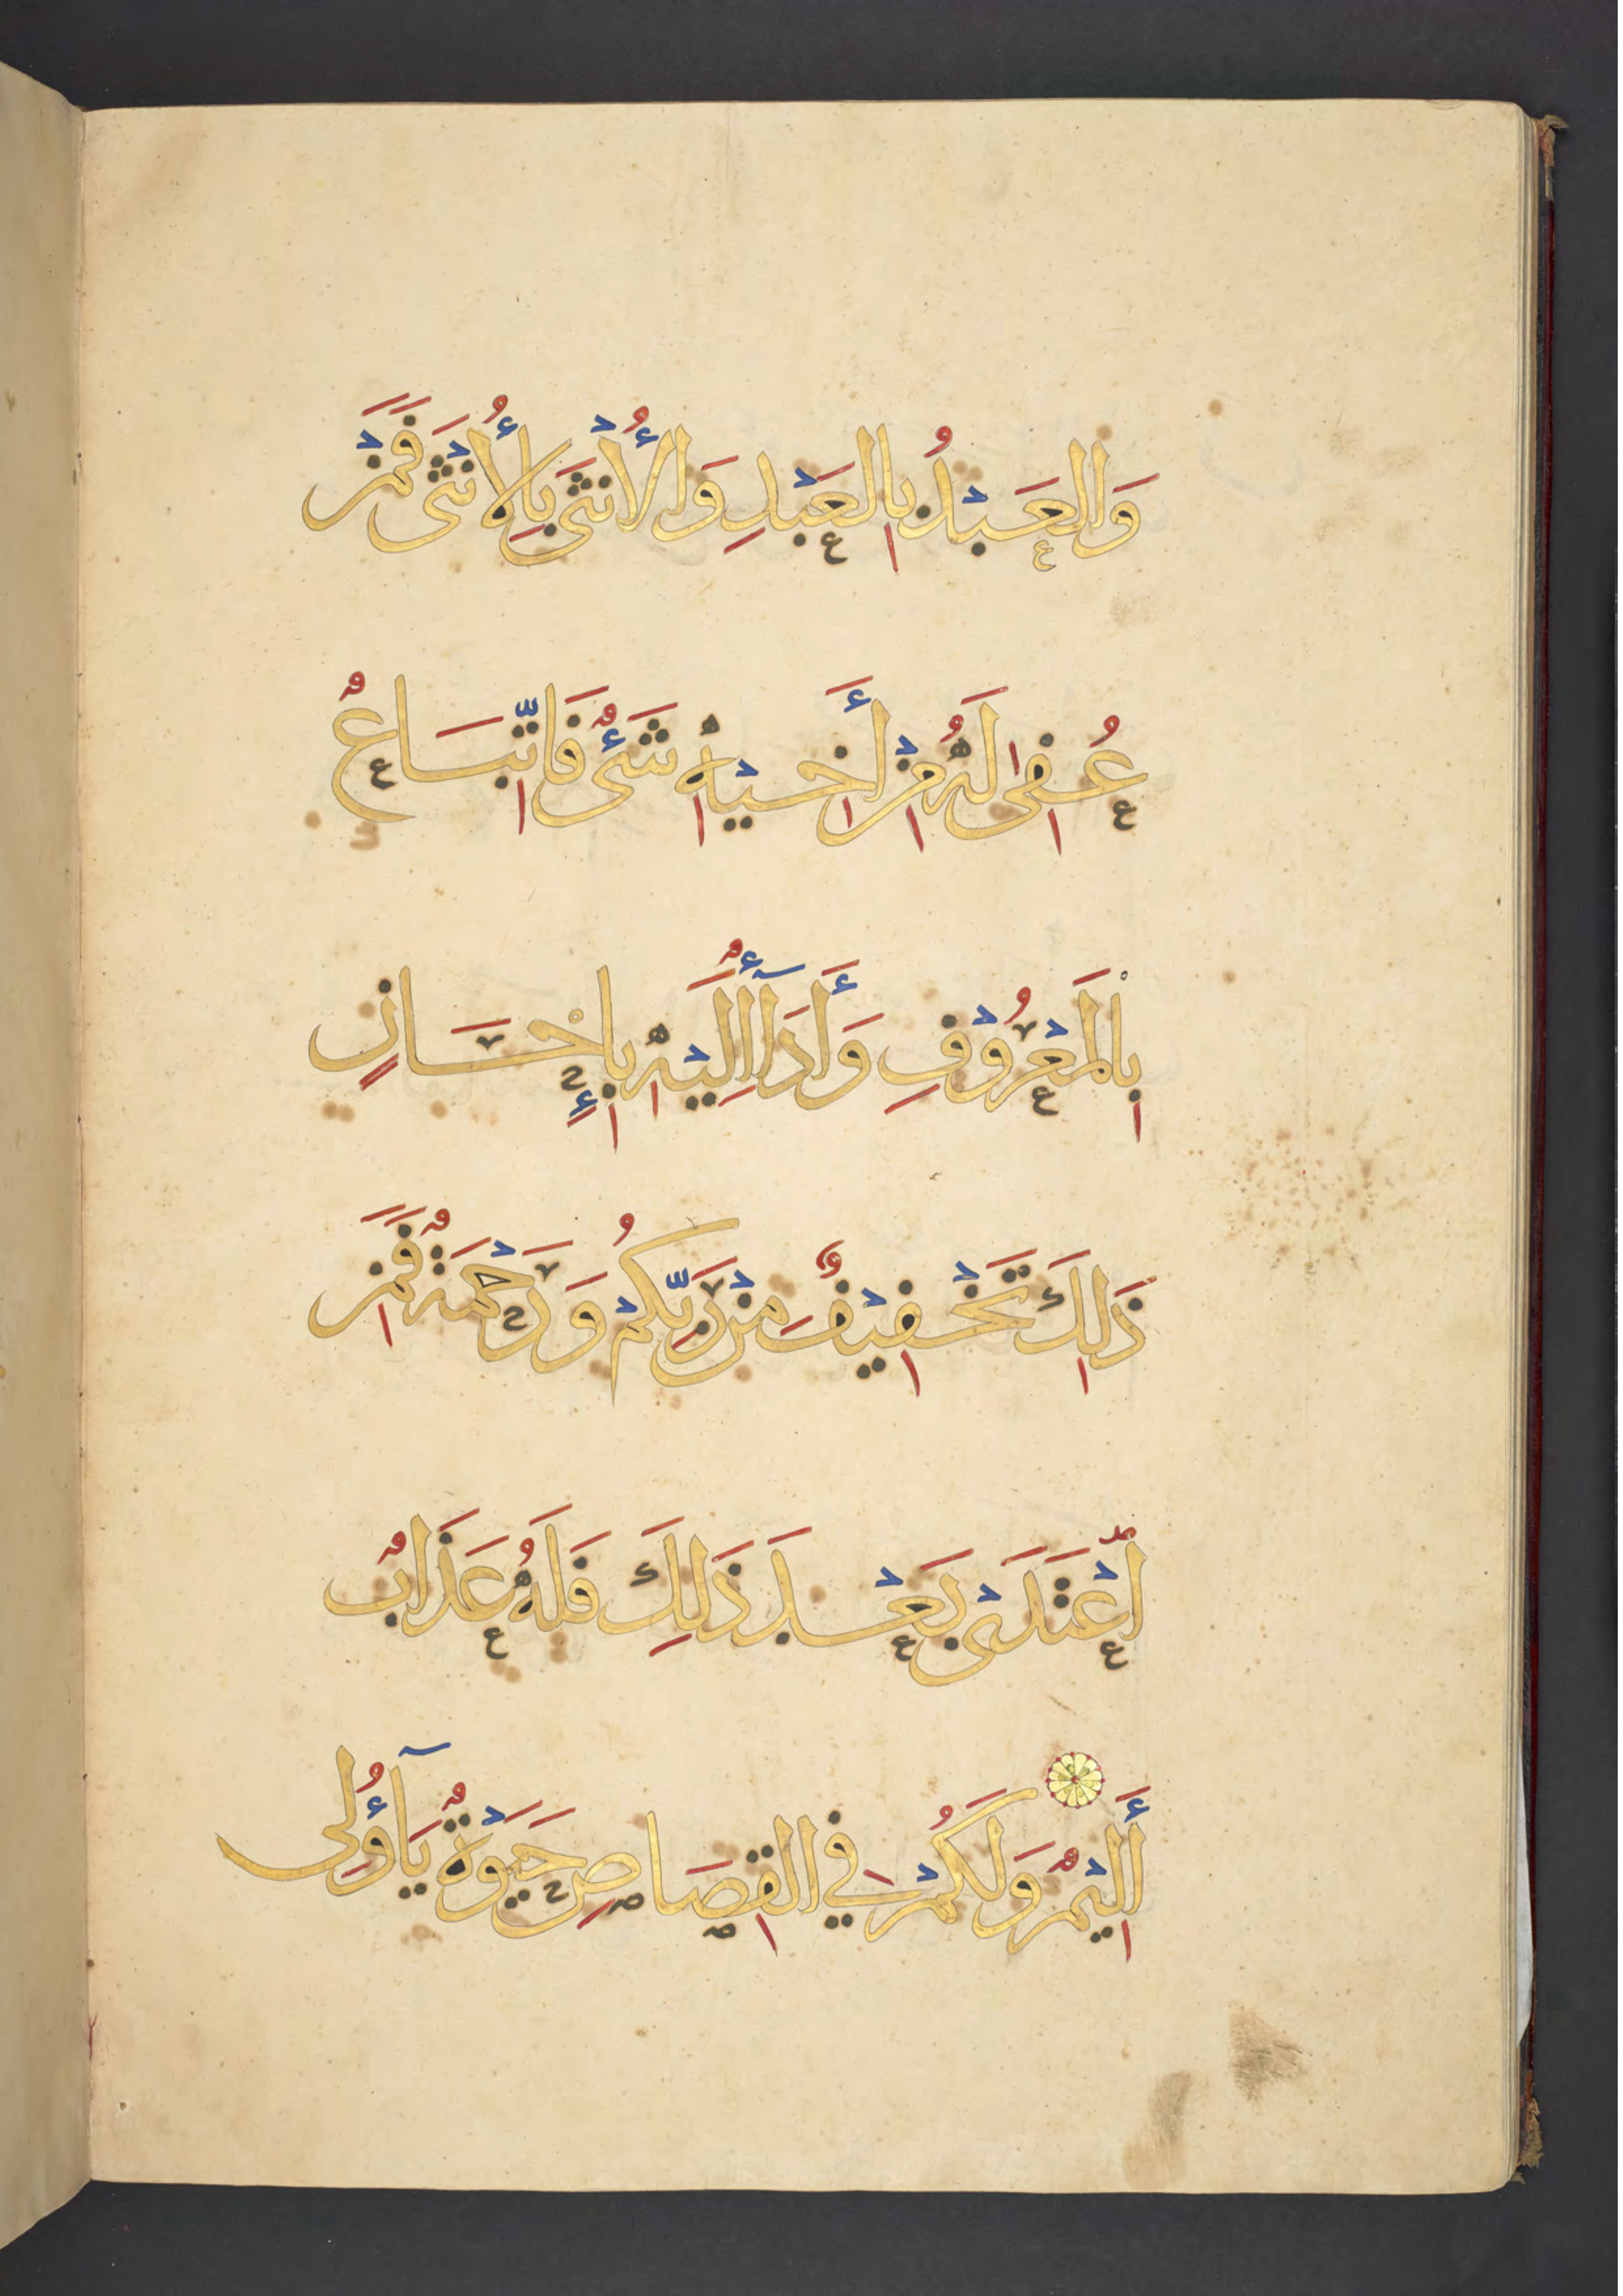 وَالعَبْدُ بِالعَبْدِ وَالأُنْثَى بِالأُنْثَى فَمَنْ
عُفِىَ لَهُ مِنْ أَخِيْهِ شَىْءٌ فَاتِّبَاعٌ
بِالمَعْرُوْفِ وَأَدَآءٌ إِلَيْهِ بِإِحْسَانٍ
ذَلِكَ تَخْفِيْفٌ مِنْ رَبِّكُمْ وَرَحْمَةٌ فَمَنِ
اعْتَدَى بَعْدَ ذَلِكَ فَلَهُ عَذَابٌ
أَلِيْمٌ وَلَكُمْ فِي القِصَاصِ حَيَوْةٌ يَآأُولِى